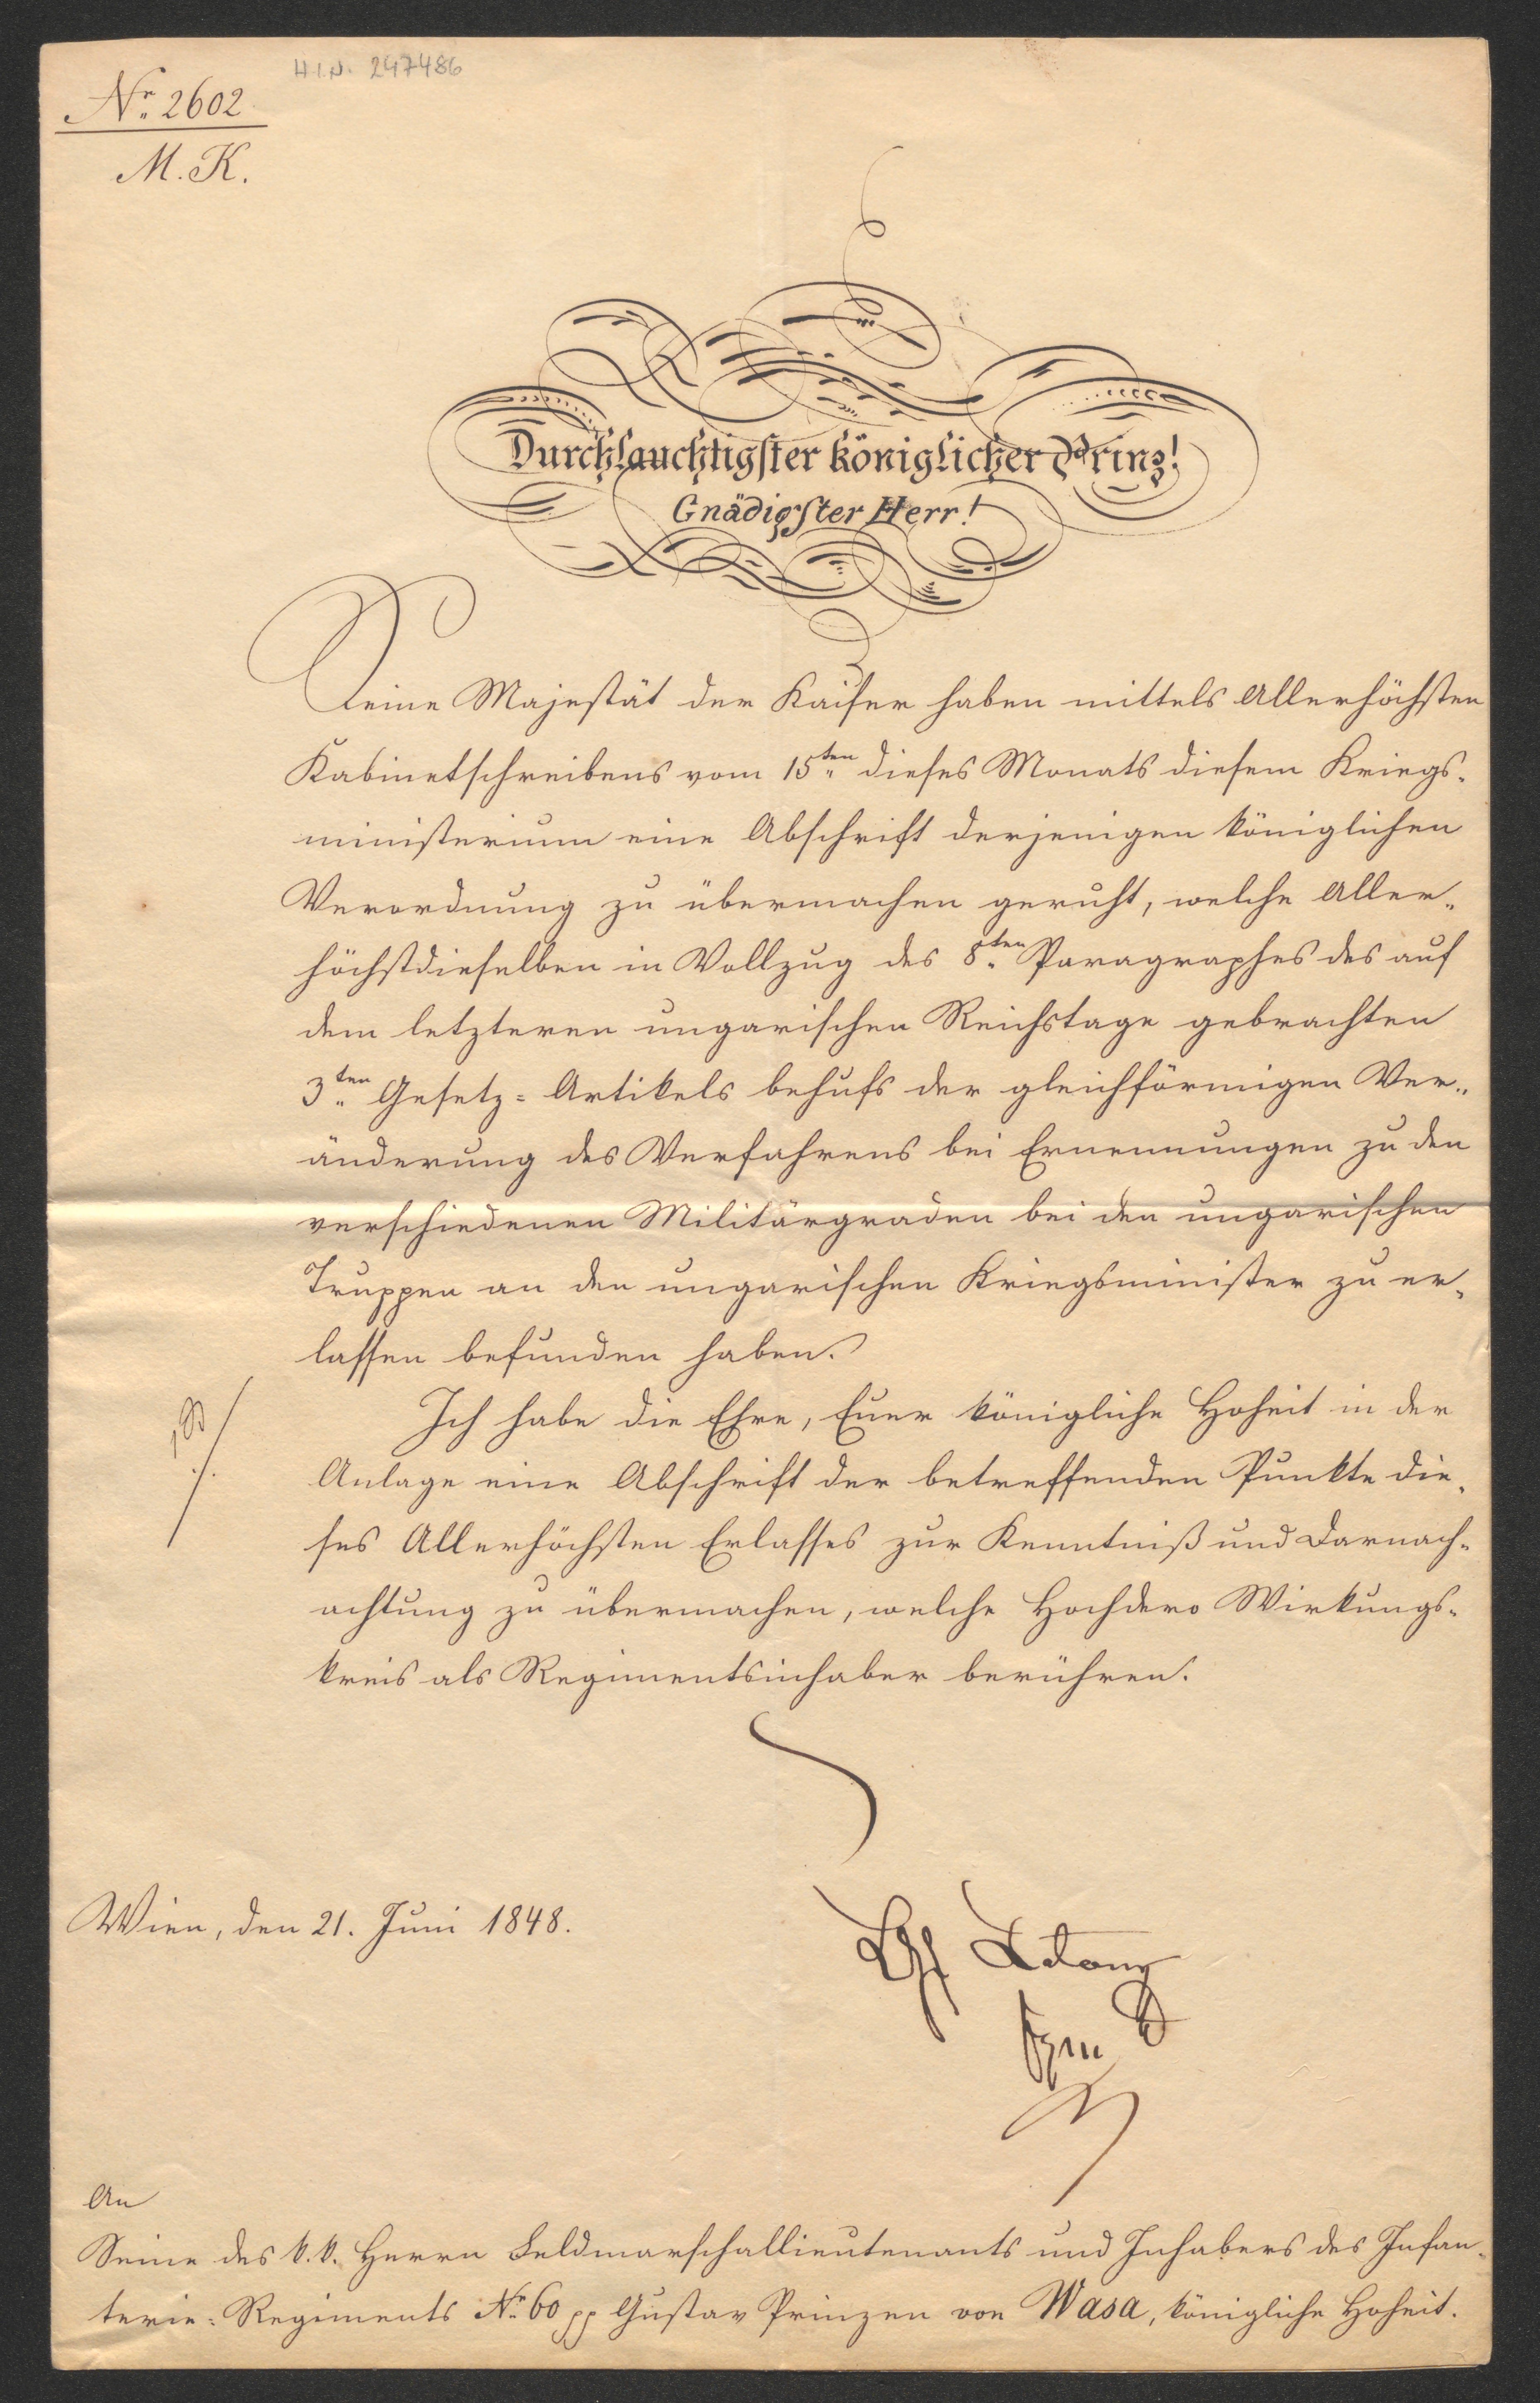 H.I.N. 247486
Nr. 2602
M. K.
Durchlauchtigster königlicher Prinz!
Gnädigster Herr!
Seine Majestät der Kaiser haben mittels Allerhöchsten
Kabinetschreibens vom 15ten dieses Monats diesem Kriegs-
ministerium eine Abschrift derjenigen königlichen
Verordnung zu übermachen geruht, welche Aller-
höchstdieselben in Vollzug des 8ten Paragraphes des auf
dem letzteren ungarischen Reichstage gebrachten
3ten Gesetz-Artikels behufs der gleichförmigen Ver-
änderung des Verfahrens bei Ernennungen zu den
verschiedenen Militärgraden bei den ungarischen
Truppen an den ungarischen Kriegsminister zu er-
lassen befunden haben.
Ich habe die Ehre, Euer königliche Hoheit in der
Anlage eine Abschrift der betreffenden Punkte die-
ses Allerhöchsten Erlasses zur Kenntniß und Darnach-
achtung zu übermachen, welche Hochdero Wirkungs-
kreis als Regimentsinhaber berühren.
Wien, den 21. Juni 1848.
Latour
fzm
An
Seine des k. k. Herrn Feldmarschallieutenants und Inhabers des Infan-
terie-Regiments Nr. 60 pp Gustav Prinzen von Wasa, königliche Hoheit.